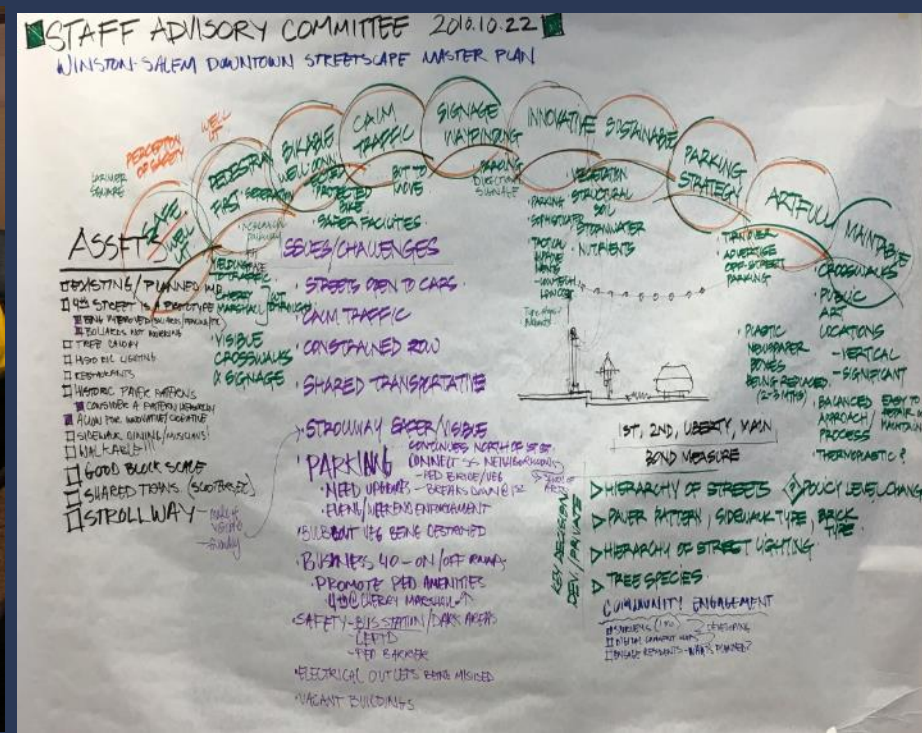 STAFF ADVISORY COMMITTEE 2018.10.22
WINSTON-SALEM DOWNTOWN STREETSCAPE MASTER PLAN
PERCEPTION
OF SAFETY
WELL
LIT
LARIMER
SQUARE
SAFE
WELL
LIT
PEDESTRIAN
FAST
BIKABLE
WELL CONN
ECTED
PROTECTED
BIKE
SAFER FACILITIES
CALM
TRAFFIC
BUT TO
MOVE
SIGNAGE
WAYFINDING
PARKING
DIRECTIONAL
SIGNAGE
INNOVATIVE
PARKING
SUSTAINABLE
VEGETATION
STRUCTURAL
SOIL
STORMWATER
NUTRIENTS
PARKING
STRATEGY
TURNOVER
ADVERTISE
OFF-STREET
PARKING
ARTFUL
MAINTABLE
CROSSWALKS
PUBLIC
ART
LOCATIONS
-VERTICAL
-SIGNIFICANT
BALANCED
APPROACH/
PROCESS
EASY TO
REPAIR
MAINTAIN
THERMOPLASTIC?
PLASTIC
NEWSPAPER
BOXES
BEING REPLACED
(2-3 MTHS)
ASSETS
EXISTING/PLANNED IMP.
4TH STREET IS A PROTOTYPE
BOLLARDS NOT WORKING
TREE CANOPY
HISTORIC LIGHTING
RESTAURANTS
HISTORIC PAVER PATTERNS
CONSIDER A PATTERN
ALLOW FOR INNOVATIVE/CREATIVE
SIDEWALK DINING/MUSICIANS!
WALKABLE!!!
GOOD BLOCK SCALE
SHARED TRANS (SCOOTERS, ETC)
STROLLWAY
CHERRY
MARSHALL
VISIBLE
CROSSWALKS
& SIGNAGE
ISSUES/CHALLENGES
STREETS OPEN TO CARS
CALM TRAFFIC
CONSTRAINED ROW
SHARED TRANSPORTATIVE
STROLLWAY SAFER/VISIBLE
CONTINUES NORTH OF
CONNECT NEIGHBORHOODS
-PED BRIDGE/VEG
PARKING
NEED UPGRADES - BREAKS DOWN @
EVENG/WEEKEND ENFORCEMENT
BULBOUT VEG BEING DESTROYED
BUSINESS 40 - ON/OFF RAMPS
PROMOTE PED AMENITIES
4TH @ CHERRY MARSHALL
SAFETY - BUS STATION/DARK AREAS
-CEPTD
-PED BARRIER
ELECTRICAL OUTLETS BEING MISUSED
VACANT BUILDINGS
1ST, 2ND, LIBERTY, MAIN
BOND MEASURE
KEY DECISION
DEV/PRIVATE
HIERARCHY OF STREETS
POLICY LEVEL CHANGE
PAVER PATTERN, SIDEWALK TYPE, BRICK
TYPE
HIERARCHY OF STREET LIGHTING
TREE SPECIES
COMMUNITY ENGAGEMENT
DEVELOPING
ENGAGE RESIDENTS - WHAT'S PLANNED?